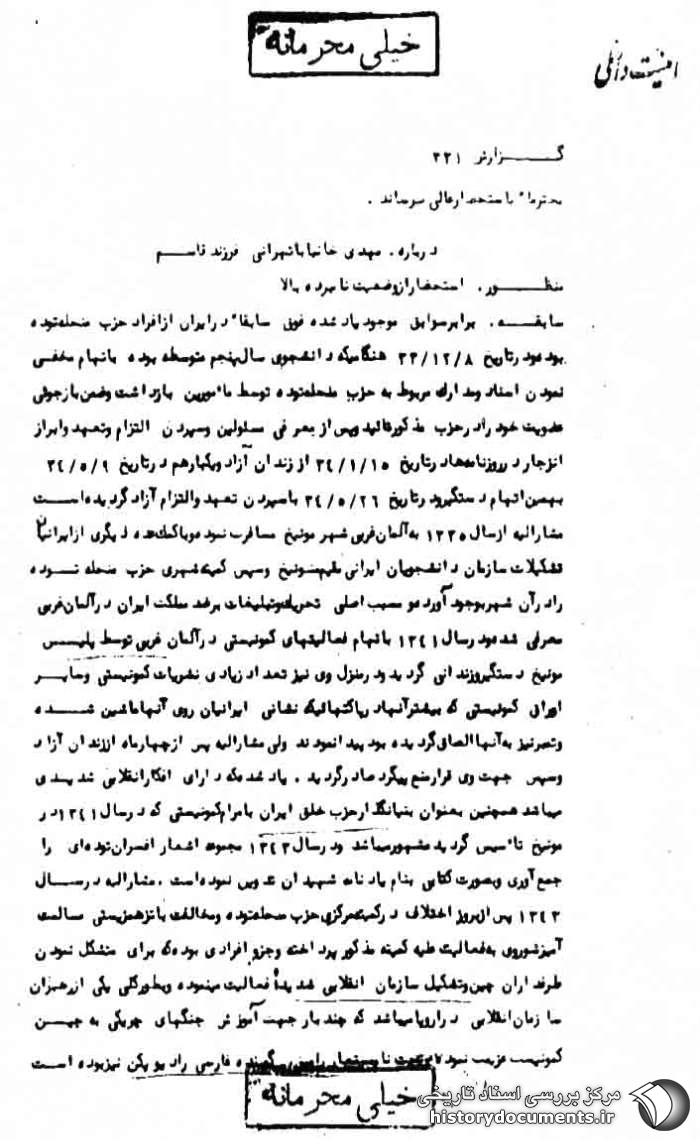 خیلی محرمانه
امنیت داخلی
گزارش ۳۳۱
محترما" باستحضار عالی میرساند.
درباره. مهدی خانبابا تهرانی فرزند قاسم
منظور. استحضار از وضعیت نامبرده بالا
سابقه. برابر سوابق موجود یاد شده فوق سابقا" در ایران از افراد حزب منحله توده
بوده و در تاریخ ۳۳/۱۲/۸ هنگامیکه دانشجوی سال پنجم متوسطه بوده باتهام مخفی
نمودن اسناد و مدارک مربوط به حزب منحله توده توسط مامورین بازداشت و ضمن بازجوئی
عضویت خود را در حزب مذکور تائید و پس از معرفی مسئولین و سپردن التزام و تعهد و ابراز
انزجار در روزنامه‌ها در تاریخ ۳۴/۱/۱۵ از زندان آزاد و یکبار هم در تاریخ ۳۴/۵/۹
بهمین اتهام دستگیر و در تاریخ ۳۴/۵/۲۶ با سپردن تعهد و التزام آزاد گردیده است
مشارالیه از سال ۱۳۳۵ به آلمان غربی شهر مونیخ مسافرت نموده و با کمک عده دیگری از ایرانیان
تشکیلات سازمان دانشجویان ایرانی مقیم مونیخ و سپس کمیته شهری حزب منحله توده
را در آن شهر بوجود آورده و مسبب اصلی تحریک و تبلیغات بر ضد مملکت ایران در آلمان غربی
معرفی شده و در سال ۱۳۴۱ باتهام فعالیتهای کمونیستی در آلمان غربی توسط پلیس
مونیخ دستگیر و زندانی گردید و در منزل وی نیز تعداد زیادی نشریات کمونیستی و سایر
اوراق کمونیستی که بیشتر آنها در پاکتهائیکه نشانی ایرانیان روی آنها ماشین شده
و تمبر نیز به آنها الصاق گردیده بود پیدا نمودند ولی مشارالیه پس از چهار ماه از زندان آزاد
و سپس جهت وی قرار منع پیگرد صادر گردید. یاد شده که دارای افکار انقلابی شدیدی
میباشد همچنین بعنوان بنیانگذار حزب خلق ایران با مرام کمونیستی که در سال ۱۳۴۱ در
مونیخ تاسیس گردید مشهور میباشد و در سال ۱۳۴۳ مجموعه اشعار افسران توده‌ای را
جمع آوری و بصورت کتابی بنام یادنامه شهیدان تدوین نموده است. مشارالیه در سال
۱۳۴۳ پس از بروز اختلاف در کمیته مرکزی حزب منحله توده و مخالفت با تز همزیستی مسالمت
آمیز شوروی به فعالیت علیه کمیته مذکور پرداخته و جزو افرادی بوده که برای متشکل نمودن
طرفداران چین و تشکیل سازمان انقلابی شدیداً فعالیت مینموده و بطور کلی یکی از رهبران
سازمان انقلابی در اروپا میباشد که چند بار جهت آموزش جنگهای چریکی به چین
کمونیست عزیمت نموده گوینده فارسی رادیو پکن نیز بوده است
خیلی محرمانه
مرکز بررسی اسناد تاریخی
historydocuments.ir